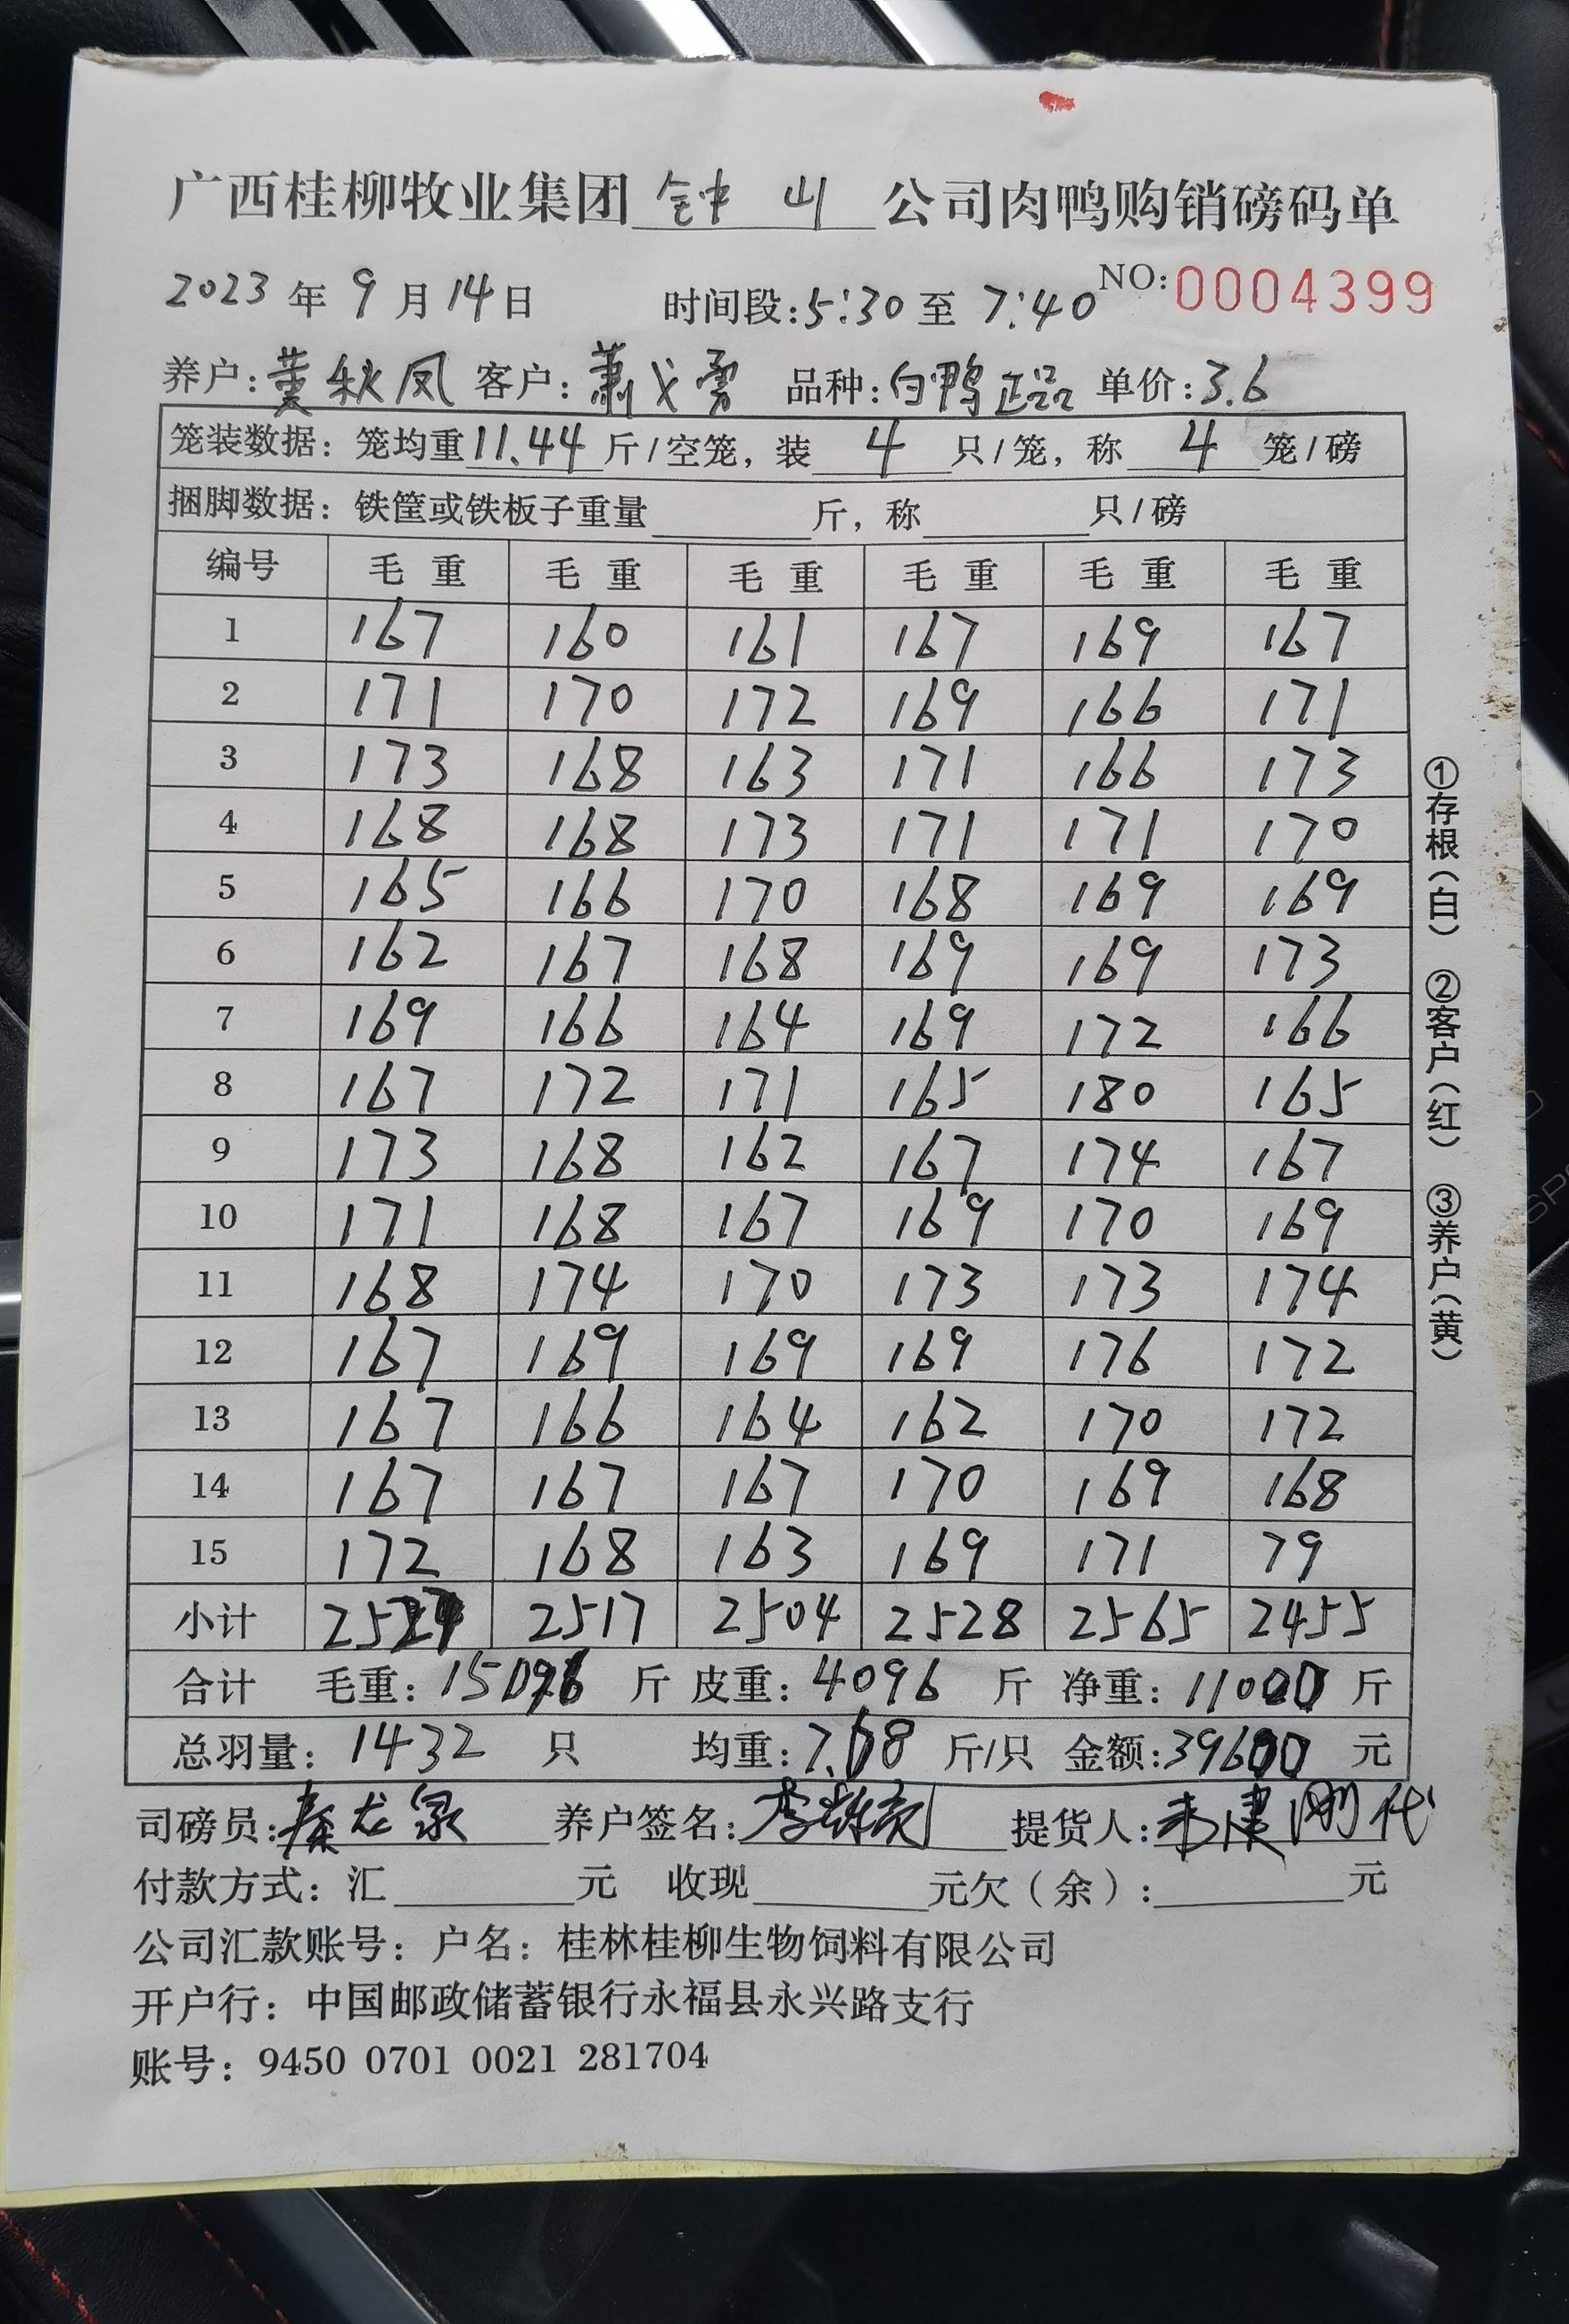 广西桂柳牧业集团 钟山 公司肉鸭购销磅码单
2023 年 9 月 14 日 时间段:5:30 至 7:40 NO:0004399
养户:黄秋凤 客户:萧戈勇 品种:白鸭正品 单价:3.6
笼装数据:笼均重 11.44 斤/空笼,装 4 只/笼,称 4 笼/磅
捆脚数据:铁筐或铁板子重量 斤,称 只/磅
编号 毛重 毛重 毛重 毛重 毛重 毛重
1 167 160 161 167 169 167
2 171 170 172 169 166 171
3 173 168 163 171 166 173
4 168 168 173 171 171 170
5 165 166 170 168 169 169
6 162 167 168 169 169 173
7 169 166 164 169 172 166
8 167 172 171 165 180 165
9 173 168 162 167 174 167
10 171 168 167 169 170 169
11 168 174 170 173 173 174
12 167 169 169 169 176 172
13 167 166 164 162 170 172
14 167 167 167 170 169 168
15 172 168 163 169 171 79
小计 2527 2517 2504 2528 2565 2455
合计 毛重:15096 斤 皮重:4096 斤 净重:11000 斤
总羽量:1432 只 均重:7.68 斤/只 金额:39600 元
司磅员:秦龙泉 养户签名:李 提货人: 建刚代
付款方式:汇 元 收现 元欠(余): 元
公司汇款账号:户名:桂林桂柳生物饲料有限公司
开户行:中国邮政储蓄银行永福县永兴路支行
账号:9450 0701 0021 281704
①存根(白) ②客户(红) ③养户(黄)